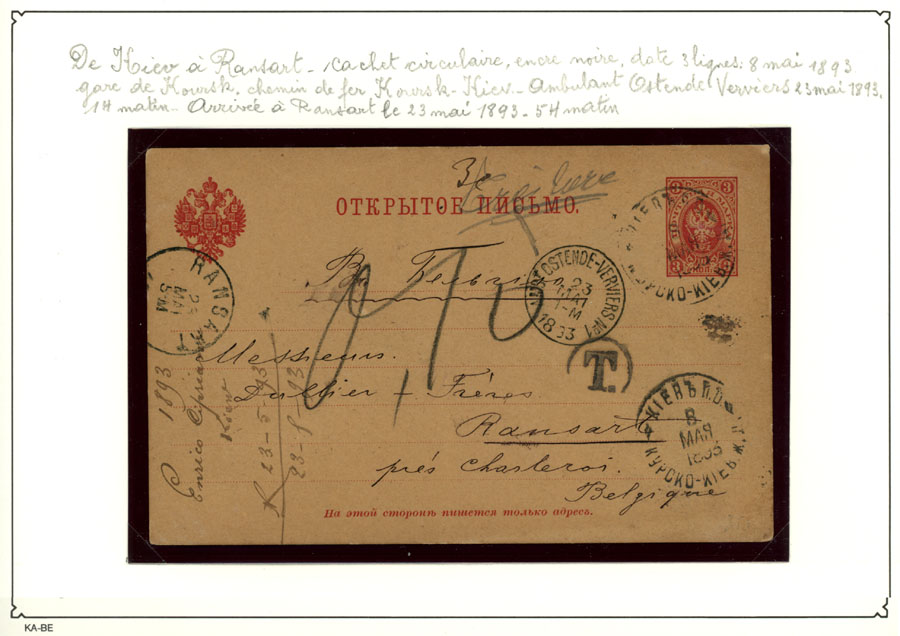 De Kiev à Ransart - cachet circulaire, encre noire, date 3 lignes: 8 mai 1893.
gare de Koursk, chemin de fer Koursk-Kiev - Ambulant Ostende Verviers 23 mai 1893,
1H matin - Arrivée à Ransart le 23 mai 1893 - 5H matin
3с
3
ОТКРЫТОЕ ПИСЬМО.
КІЕВЪ
3 КОП. 3
КУРСКО-КІЕВ.Ж.
Въ Бельгію
OSTENDE-VERVIERS N°1
23
MAI
1-M
1893
RANSART
23
MAI
5-M
0,10
T.
Messieurs.
Dullier + Frères
Ransart
près Charleroi.
Belgique
КІЕВЪ П.О.
8
МАЯ
1893
КУРСКО-КІЕВ.Ж.
1893
Enrico Cipriani
Kiew
R 23-5-93
23-5-93
На этой сторонѣ пишется только адресъ.
KA-BE